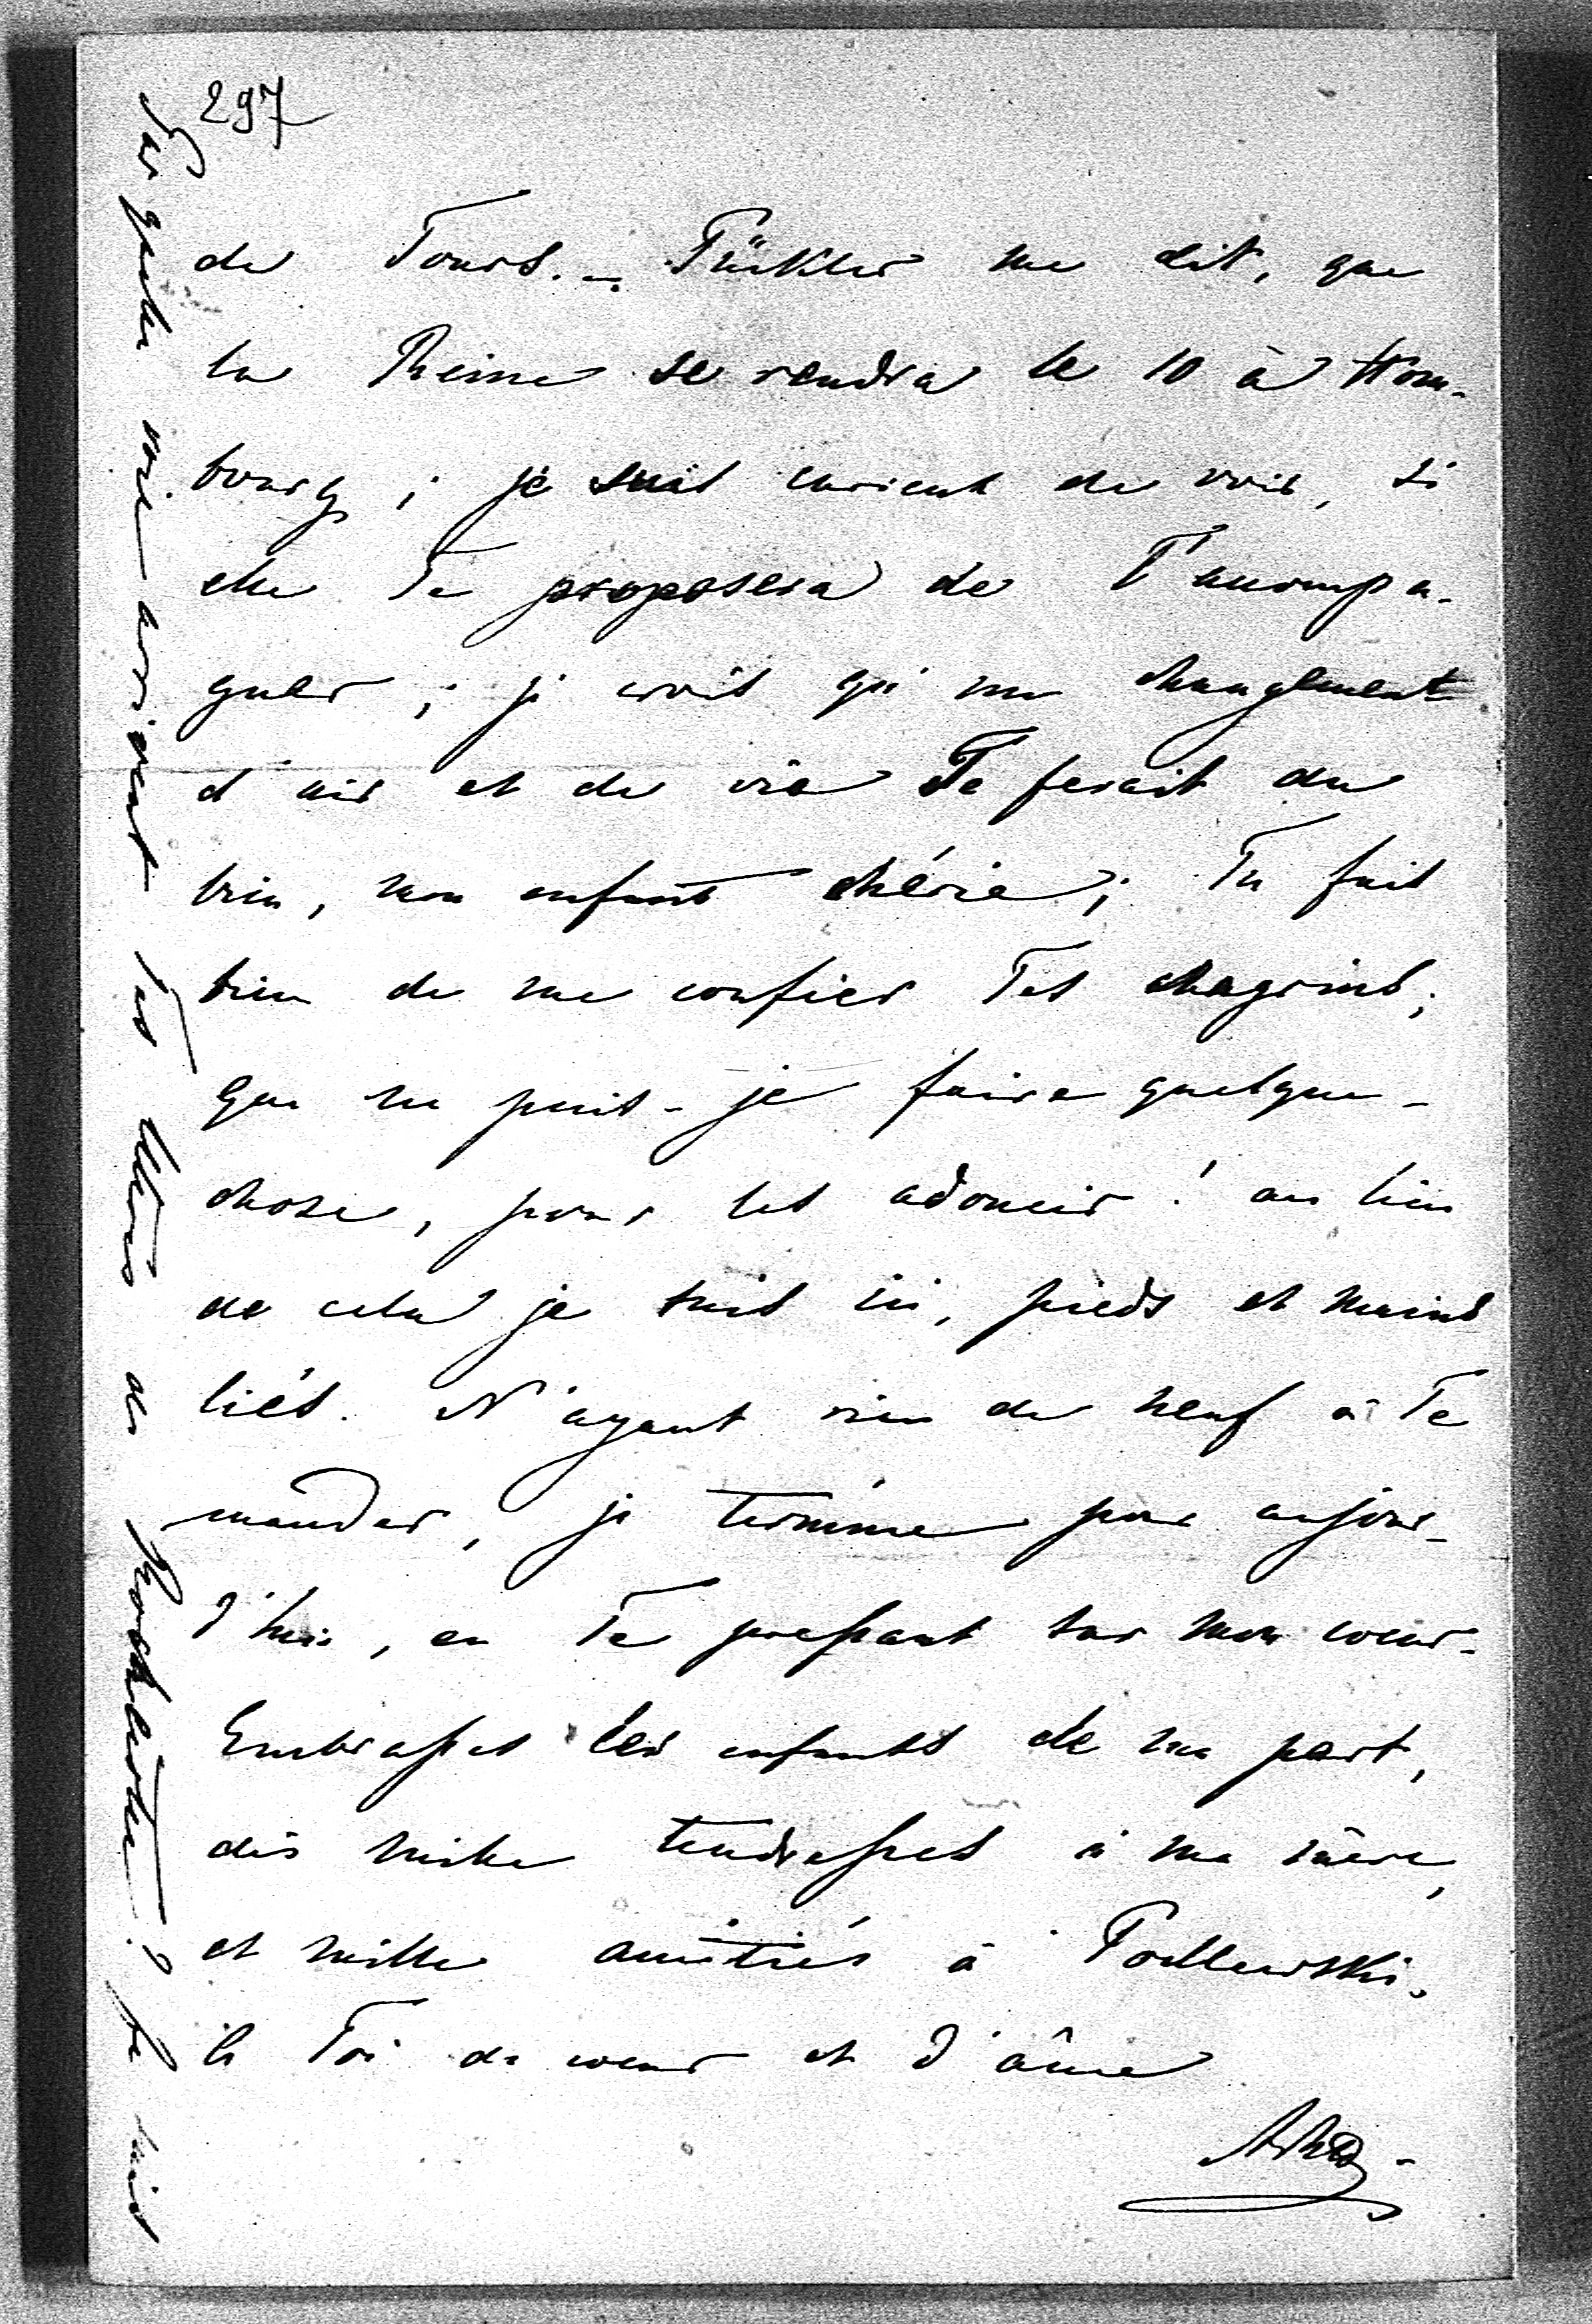 297
de Tours. – Pückler me dit, que
la Reine se rendra le 10 à Hom-
bourg ; je suis curieux de voir, si
elle Te proposera de l'accompa-
gner ; je crois qu'un changement
d'air et de vie Te ferait du
bien, mon enfant chérie ; Tu fais
bien de me confier Tes chagrins ;
que ne puis-je faire quelque-
chose, pour les adoucir ! au lieu
de cela je suis ici, pieds et mains
liés. N'ayant rien de neuf à Te
mander, je termine pour aujour-
d'hui, en Te pressant sur mon coeur.
Embrasses les enfants de ma part,
dis mille tendresses à ma mère,
et mille amitiés à
à Toi de coeur et d'âme
Par quelle voie arrivent Tes lettres de ? je suis